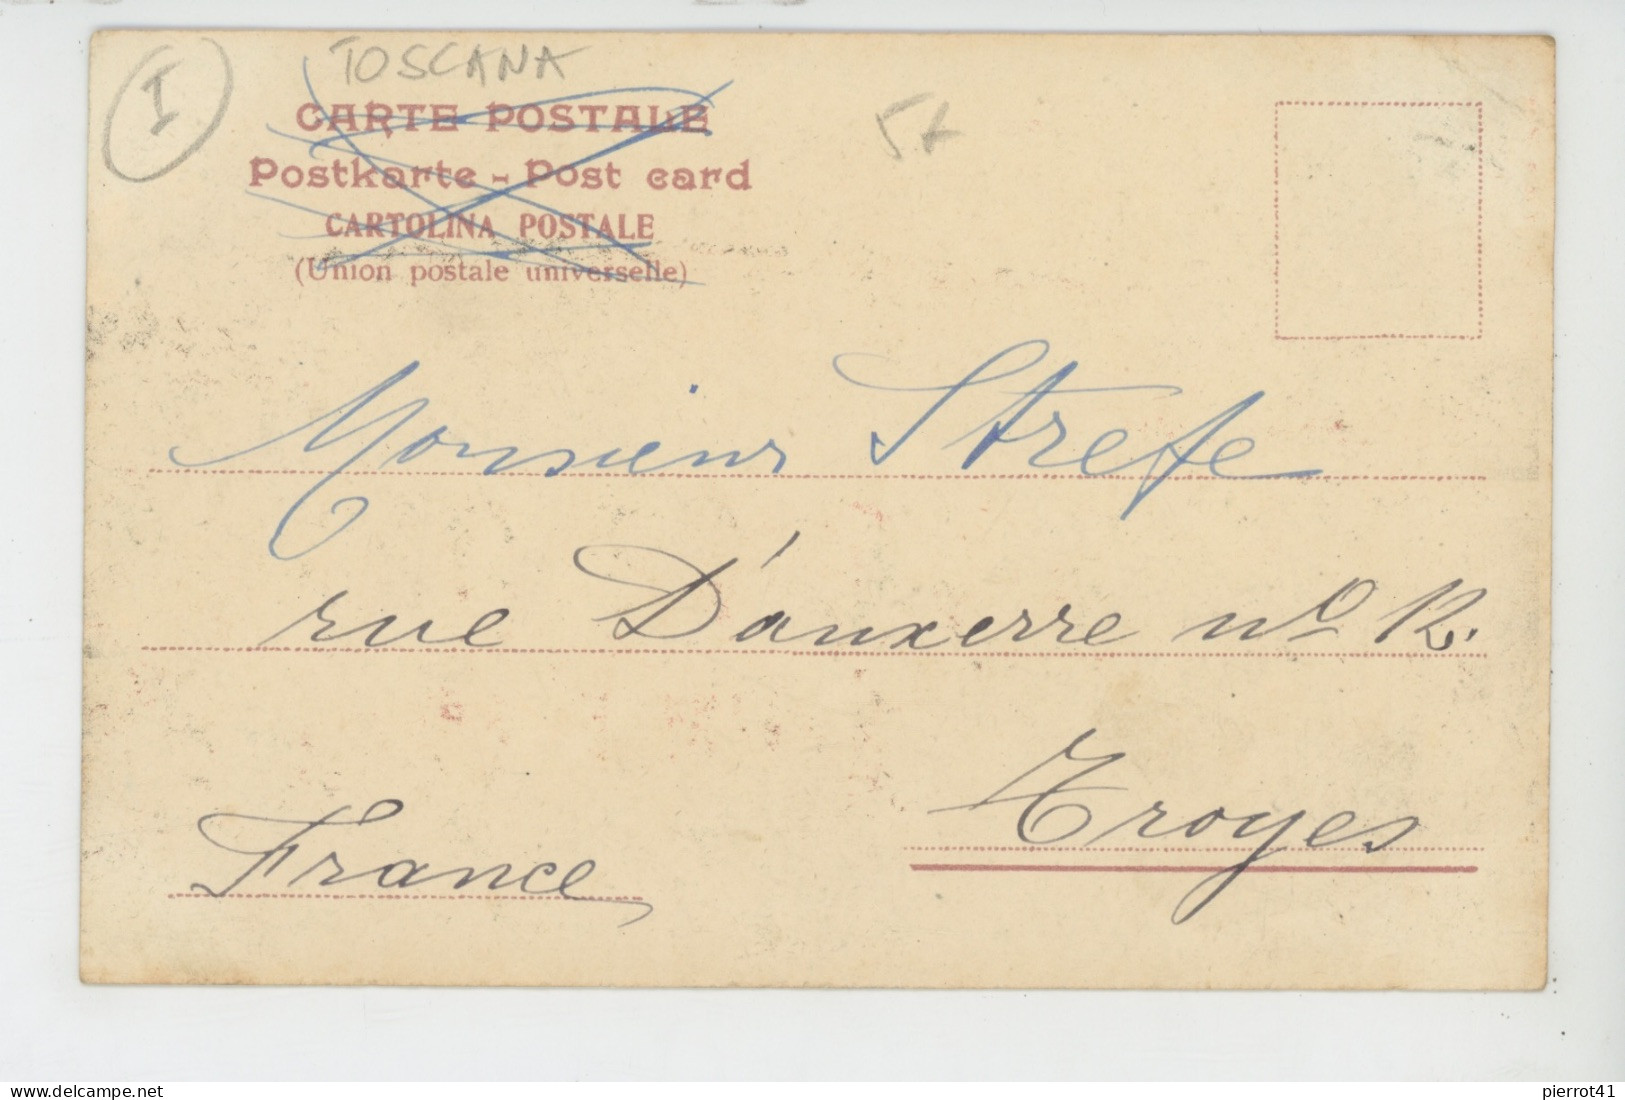 I
TOSCANA
CARTE POSTALE
Postkarte - Post card
CARTOLINA POSTALE
(Union postale universelle)
Monsieur Strefe
rue D'auxerre no 12.
Troyes
France
pierrot41